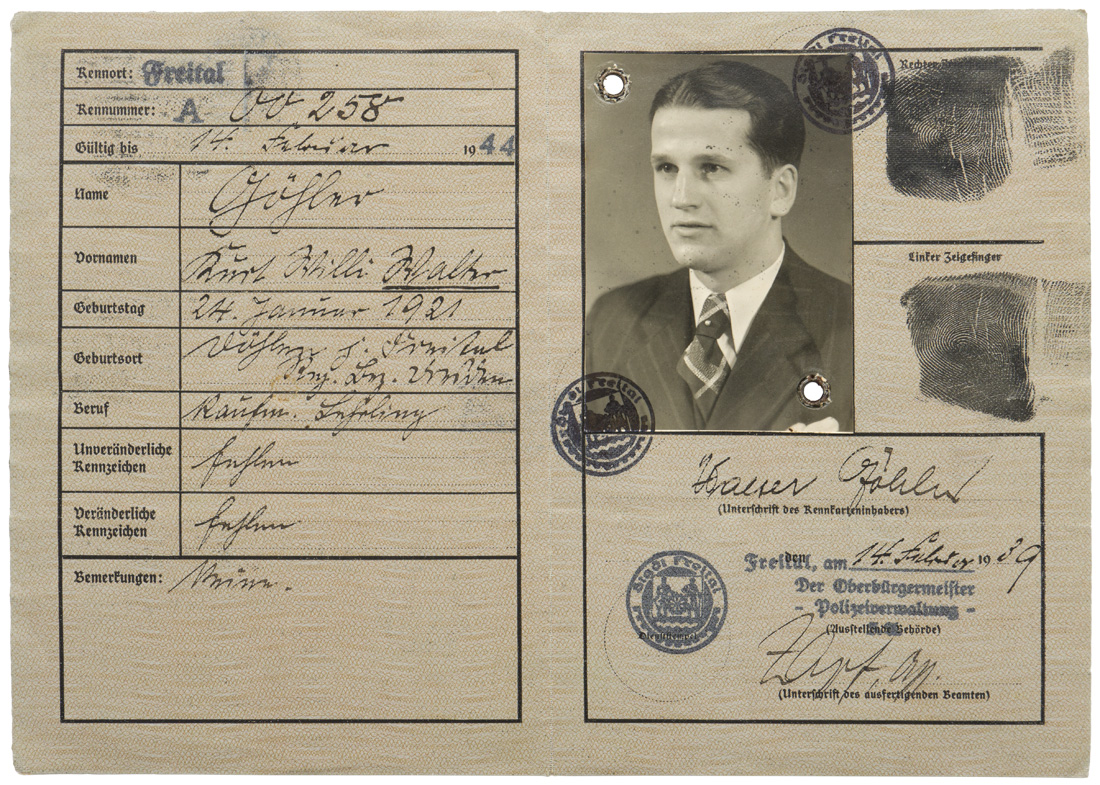 Kennort: Freital
Kennummer: A 00 258
Gültig bis 14. Februar 1944
Name Göhler
Vornamen Kurt Willi Walter
Geburtstag 24. Januar 1921
Geburtsort Döhlen j. Freital
Reg. Bez. Dresden
Beruf Kaufm. Lehrling
Unveränderliche
Kennzeichen fehlen
Veränderliche
Kennzeichen fehlen
Bemerkungen: Keine.
Stadt Freital
Rechter Zeigefinger
Linker Zeigefinger
Stadt Freital
Walter Göhler
(Unterschrift des Kennkarteninhabers)
Freital, den am 14. Februar 1939
Der Oberbürgermeister
- Polizeiverwaltung -
(Ausstellende Behörde)
Stadt Freital
Dienststempel
(Unterschrift des ausfertigenden Beamten)